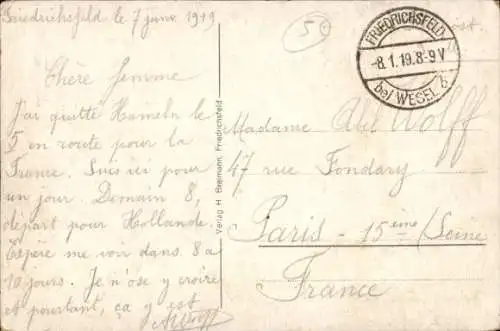 Friedrichsfeld le 7 janv. 1919
Chère femme
J'ai quitté Hameln le
5 en route pour la
France. Suis ici pour
un jour. Demain 8,
départ pour Hollande.
Espère me voir dans 8 à
10 jours. Je n'ose y croire
et pourtant, ça y est
AWolff
Verlag H. Biermann, Friedrichsfeld
5€
FRIEDRICHSFELD
-8.1.19.8-9V
bei WESEL b
Madame Abel Wolff
47 rue Fondary
Paris - 15ème (Seine
France